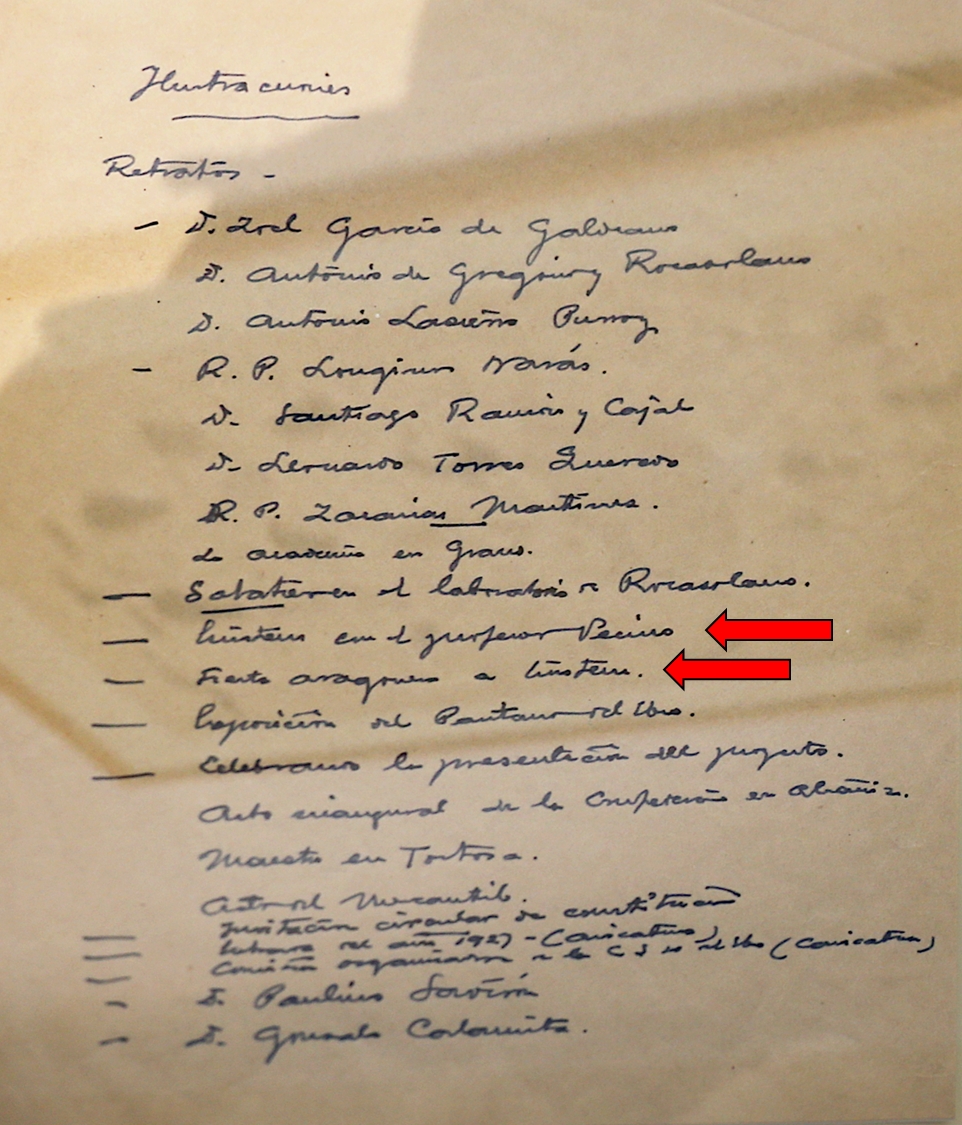 Ilustraciones
Retratos -
- D. Zoel García de Galdeano
D. Antonio de Gregorio y Rocasolano
D. Antonio Lasierra Purroy
- R. P. Longinos Navás.
D. Santiago Ramón y Cajal
D. Leonardo Torres Quevedo
R. P. Zacarías Martínez.
La academia en Graus.
- Sabatier en el laboratorio de Rocasolano.
- Einstein con el profesor Vecino
- Fiesta aragonesa a Einstein.
- Exposición del Pantano del Ebro.
- Celebrando la presentación del proyecto.
Acto inaugural de la Confederación en Alcañiz.
Maestu en Tortosa.
Acto del Mercantil.
- Invitación circular de constitución
- del año 1927 - (Caricatura)
- Comisión organizadora de la C S H del Ebro (Caricatura)
- D. Paulino Savirón
- D. Gonzalo Calamita.